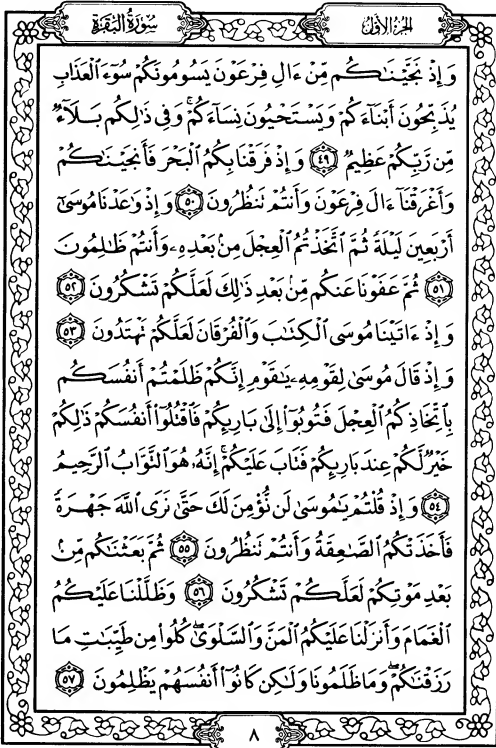 سُورَةُ البَقَرَةِ
الجُزءُ الأوَّلُ
وَإِذْ نَجَّيْنَٰكُم مِّنْ ءَالِ فِرْعَوْنَ يَسُومُونَكُمْ سُوٓءَ ٱلْعَذَابِ
يُذَبِّحُونَ أَبْنَآءَكُمْ وَيَسْتَحْيُونَ نِسَآءَكُمْ ۚ وَفِى ذَٰلِكُم بَلَآءٌ
مِّن رَّبِّكُمْ عَظِيمٌ ٤٩ وَإِذْ فَرَقْنَا بِكُمُ ٱلْبَحْرَ فَأَنجَيْنَٰكُمْ
وَأَغْرَقْنَآ ءَالَ فِرْعَوْنَ وَأَنتُمْ تَنظُرُونَ ٥٠ وَإِذْ وَٰعَدْنَا مُوسَىٰٓ
أَرْبَعِينَ لَيْلَةً ثُمَّ ٱتَّخَذْتُمُ ٱلْعِجْلَ مِنۢ بَعْدِهِۦ وَأَنتُمْ ظَٰلِمُونَ
٥١ ثُمَّ عَفَوْنَا عَنكُم مِّنۢ بَعْدِ ذَٰلِكَ لَعَلَّكُمْ تَشْكُرُونَ ٥٢
وَإِذْ ءَاتَيْنَا مُوسَى ٱلْكِتَٰبَ وَٱلْفُرْقَانَ لَعَلَّكُمْ تَهْتَدُونَ ٥٣
وَإِذْ قَالَ مُوسَىٰ لِقَوْمِهِۦ يَٰقَوْمِ إِنَّكُمْ ظَلَمْتُمْ أَنفُسَكُم
بِٱتِّخَاذِكُمُ ٱلْعِجْلَ فَتُوبُوٓا۟ إِلَىٰ بَارِئِكُمْ فَٱقْتُلُوٓا۟ أَنفُسَكُمْ ذَٰلِكُمْ
خَيْرٌ لَّكُمْ عِندَ بَارِئِكُمْ فَتَابَ عَلَيْكُمْ ۚ إِنَّهُۥ هُوَ ٱلتَّوَّابُ ٱلرَّحِيمُ
٥٤ وَإِذْ قُلْتُمْ يَٰمُوسَىٰ لَن نُّؤْمِنَ لَكَ حَتَّىٰ نَرَى ٱللَّهَ جَهْرَةً
فَأَخَذَتْكُمُ ٱلصَّٰعِقَةُ وَأَنتُمْ تَنظُرُونَ ٥٥ ثُمَّ بَعَثْنَٰكُم مِّنۢ
بَعْدِ مَوْتِكُمْ لَعَلَّكُمْ تَشْكُرُونَ ٥٦ وَظَلَّلْنَا عَلَيْكُمُ
ٱلْغَمَامَ وَأَنزَلْنَا عَلَيْكُمُ ٱلْمَنَّ وَٱلسَّلْوَىٰ ۖ كُلُوا۟ مِن طَيِّبَٰتِ مَا
رَزَقْنَٰكُمْ ۖ وَمَا ظَلَمُونَا وَلَٰكِن كَانُوٓا۟ أَنفُسَهُمْ يَظْلِمُونَ ٥٧
٨